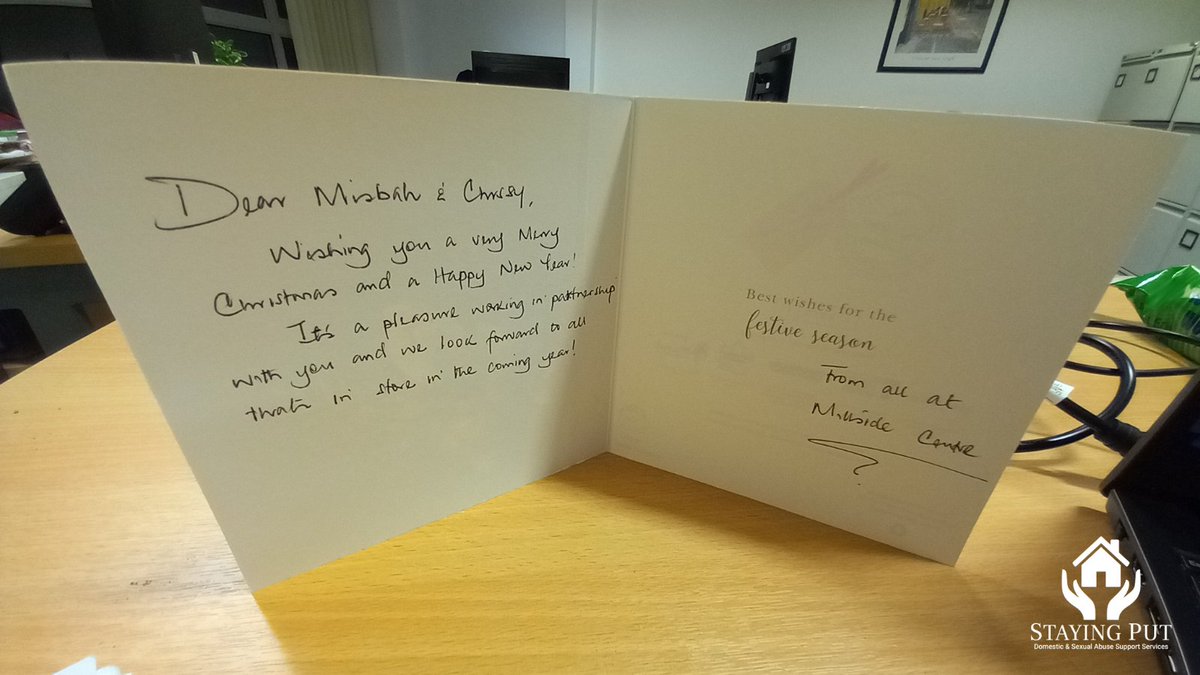 Dear Misbah & Chrissy,
Wishing you a very Merry
Christmas and a Happy New Year!
It's a pleasure working in partnership
with you and we look forward to all
that's in store in the coming year!
Best wishes for the
festive season
From all at
Millside Centre
STAYING PUT
Domestic & Sexual Abuse Support Services